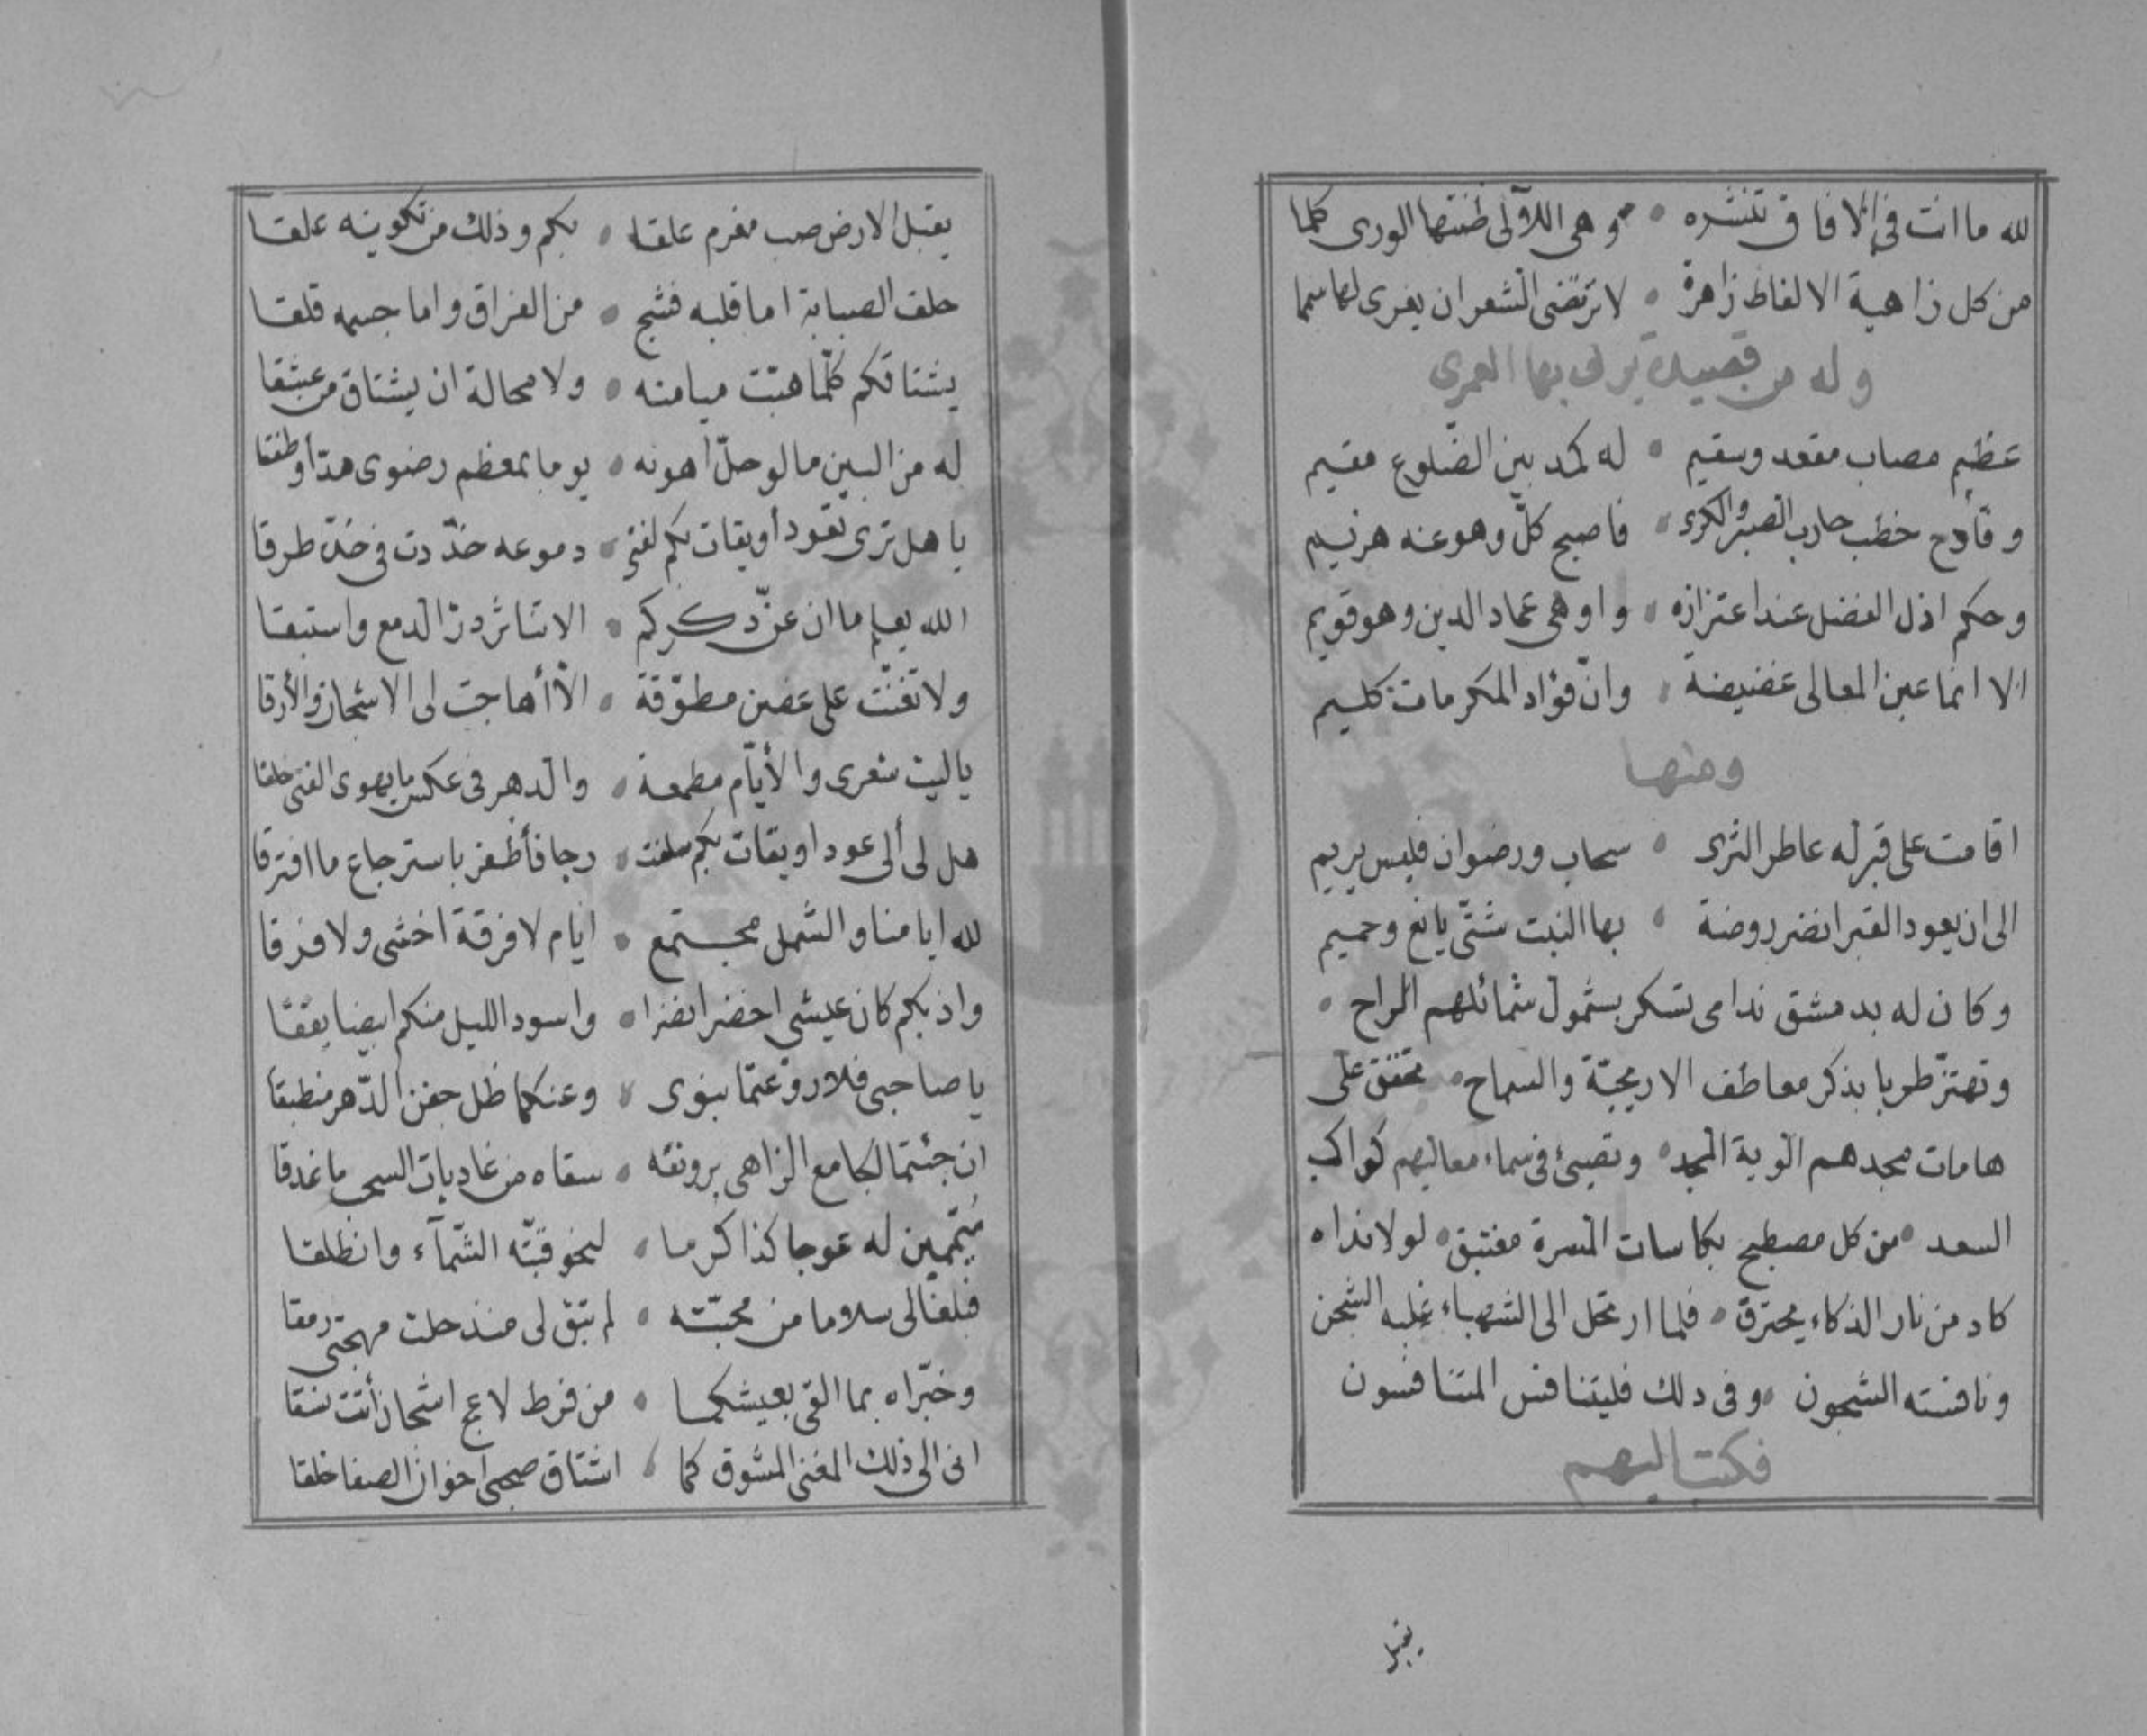 لله ما انت فى الافاق تنشره • وهى اللآلى ظنتها الورى كلما
من كل زاهية الالفاظ زاهرة • لا ترتضى الشعر ان يغرى لها سما
وله من قصيدة يرثى بها العمرى
عظيم مصاب مقعد ومقيم • له كمد بين الضّلوع مقيم
وفادح خطب حارب الصبر والكرى • فاصبح كلّ وهو عنه هزيم
وحكم اذل الفضل عند اعتزازه • واوهى عماد الدين وهو قويم
الا انما عين المعالى غضيضة • وانّ فؤاد المكرمات كليم
ومنها
اقامت على قبر له عاطر الثرى • سحاب ورضوان فليس يريم
الى ان يعود القبر انضر روضة • بها النبت شتّى يانع وجميم
وكان له بدمشق ندامى تسكر بشمول شمائلهم الراح •
وتهتزّ طربا بذكر معاطف الاريحيّة والسماح • تخفق على
هامات مجدهم الوية المجد • وتضيئ فى سماء معاليهم كواكب
السعد • من كل مصطبح بكاسات المسرة مغتبق • لولا نداه
كاد من نار الذكاء يحترق • فلما ارتحل الى الشهباء غلبه الشجن
ونافسته الشجون • وفى ذلك فليتنافس المتنافسون
فكتب اليهم
يقبل
يقبل الارض صب مغرم علقا • بكم وذلك من تكوينه علقا
حلف الصبابة اما قلبه فشج • من الفراق واما جسمه قلقا
يشتاقكم كلّما هبّت ميامنه • ولا محالة ان يشتاق من عشقا
له من البين ما لو حلّ اهونه • يوما بمعظم رضوى هدّ او طفقا
يا هل ترى تعود أويقات بكم لفتى • دموعه خدّدت فى خدّه طرقا
الله يعلم ما ان عنّ ذكركم • الا تناثر درّ الدمع واستبقا
ولا تغنّت على غصن مطوّقة • الّا أهاجت لى الاشجان والأرقا
يا ليت شعرى والأيّام مطمعة • والدهر فى عكس ما يهوى الفتى خلقا
هل لى ألى عود اويقات بكم سلفت • رجا فأظفر باسترجاع ما افترقا
لله ايامنا والشمل مجتمع • ايام لا فرقة اخشى ولا فرقا
واذ بكم كان عيشى اخضرا نضرا • واسود الليل منكم ابيضا يققا
يا صاحبى فلا روّعتما بنوى • وعنكما ظل جفن الدّهر منطبقا
ان جئتما الجامع الزاهى برونقه • سقاه من غاديات السحب ما غدقا
مُيمّمين له عوجا كذا كرما • لنحو قبّته الشمّآء وانطلقا
فبلغا لى سلاما من محبّته • لم تبق لى منذ حلت مهجتى رمقا
وخبّراه بما القى بعيشكما • من فرط لاعج اشجان أتت نسقا
انى الى ذلك المغنى المشوق كما • اشتاق صحبى اخوان الصفا خلقا